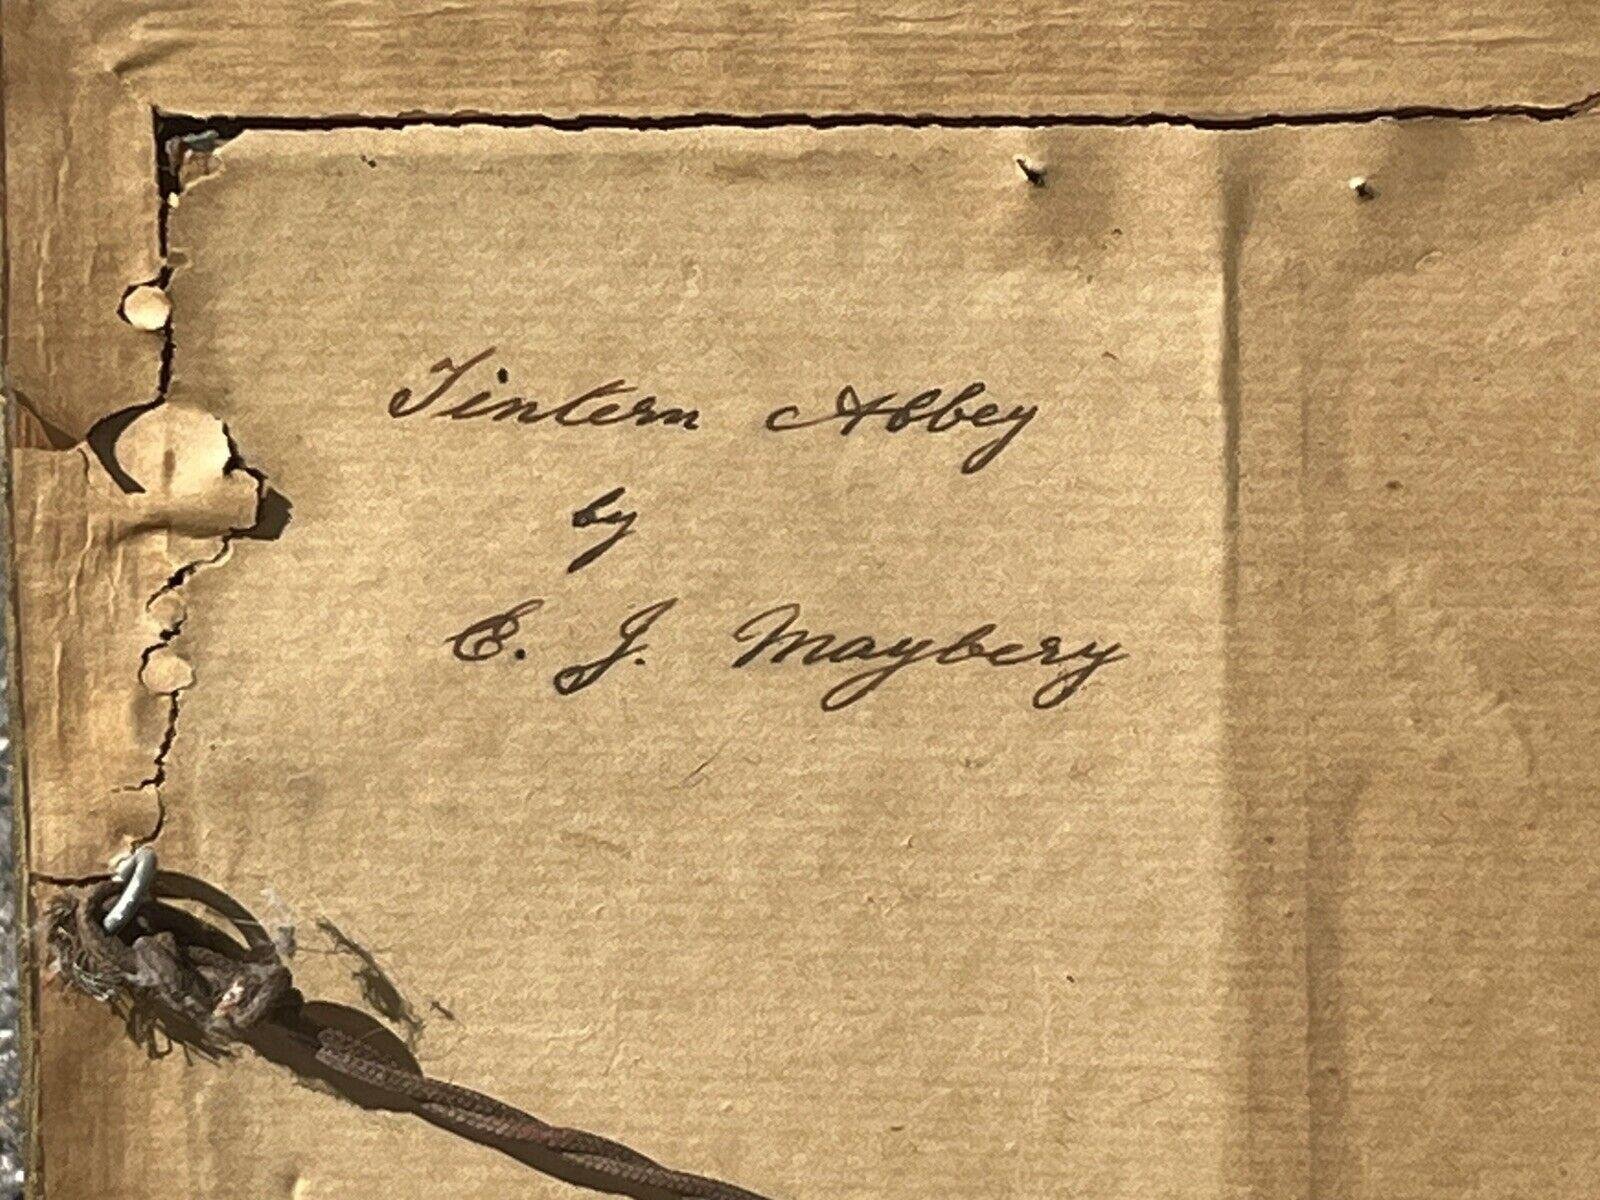 Tintern Abbey
by
E. J. Maybery